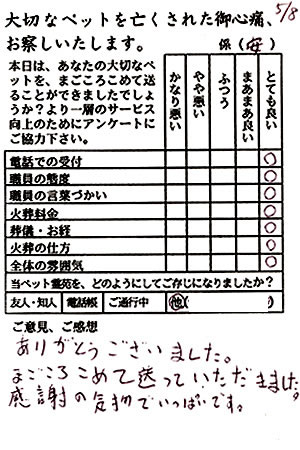 大切なペットを亡くされた御心痛、
5/8
お察しいたします。
係(安)
本日は、あなたの大切なペットを、まごころこめて送ることができましたでしょうか?より一層のサービス向上のためにアンケートにご協力下さい。
かなり悪い
やや悪い
ふつう
まあまあ良い
とても良い
電話での受付 ○
職員の態度 ○
職員の言葉づかい ○
火葬料金 ○
葬儀・お経 ○
火葬の仕方 ○
全体の雰囲気 ○
当ペット霊苑を、どのようにしてご存じになりましたか?
友人・知人 電話帳 ご通行中 他( )
ご意見、ご感想
ありがとうございました。
まごころこめて送っていただきました。
感謝の気持でいっぱいです。